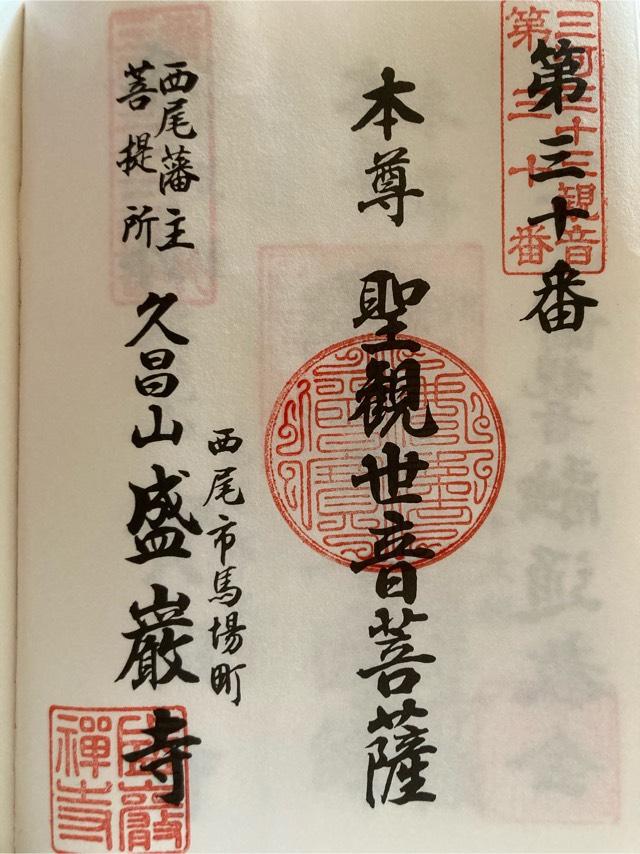 第三十番
三河三十三観音
第三十番
本尊
聖観世音菩薩
西尾市馬場町
西尾藩主
菩提所
久昌山盛巌寺
盛巌
禅寺